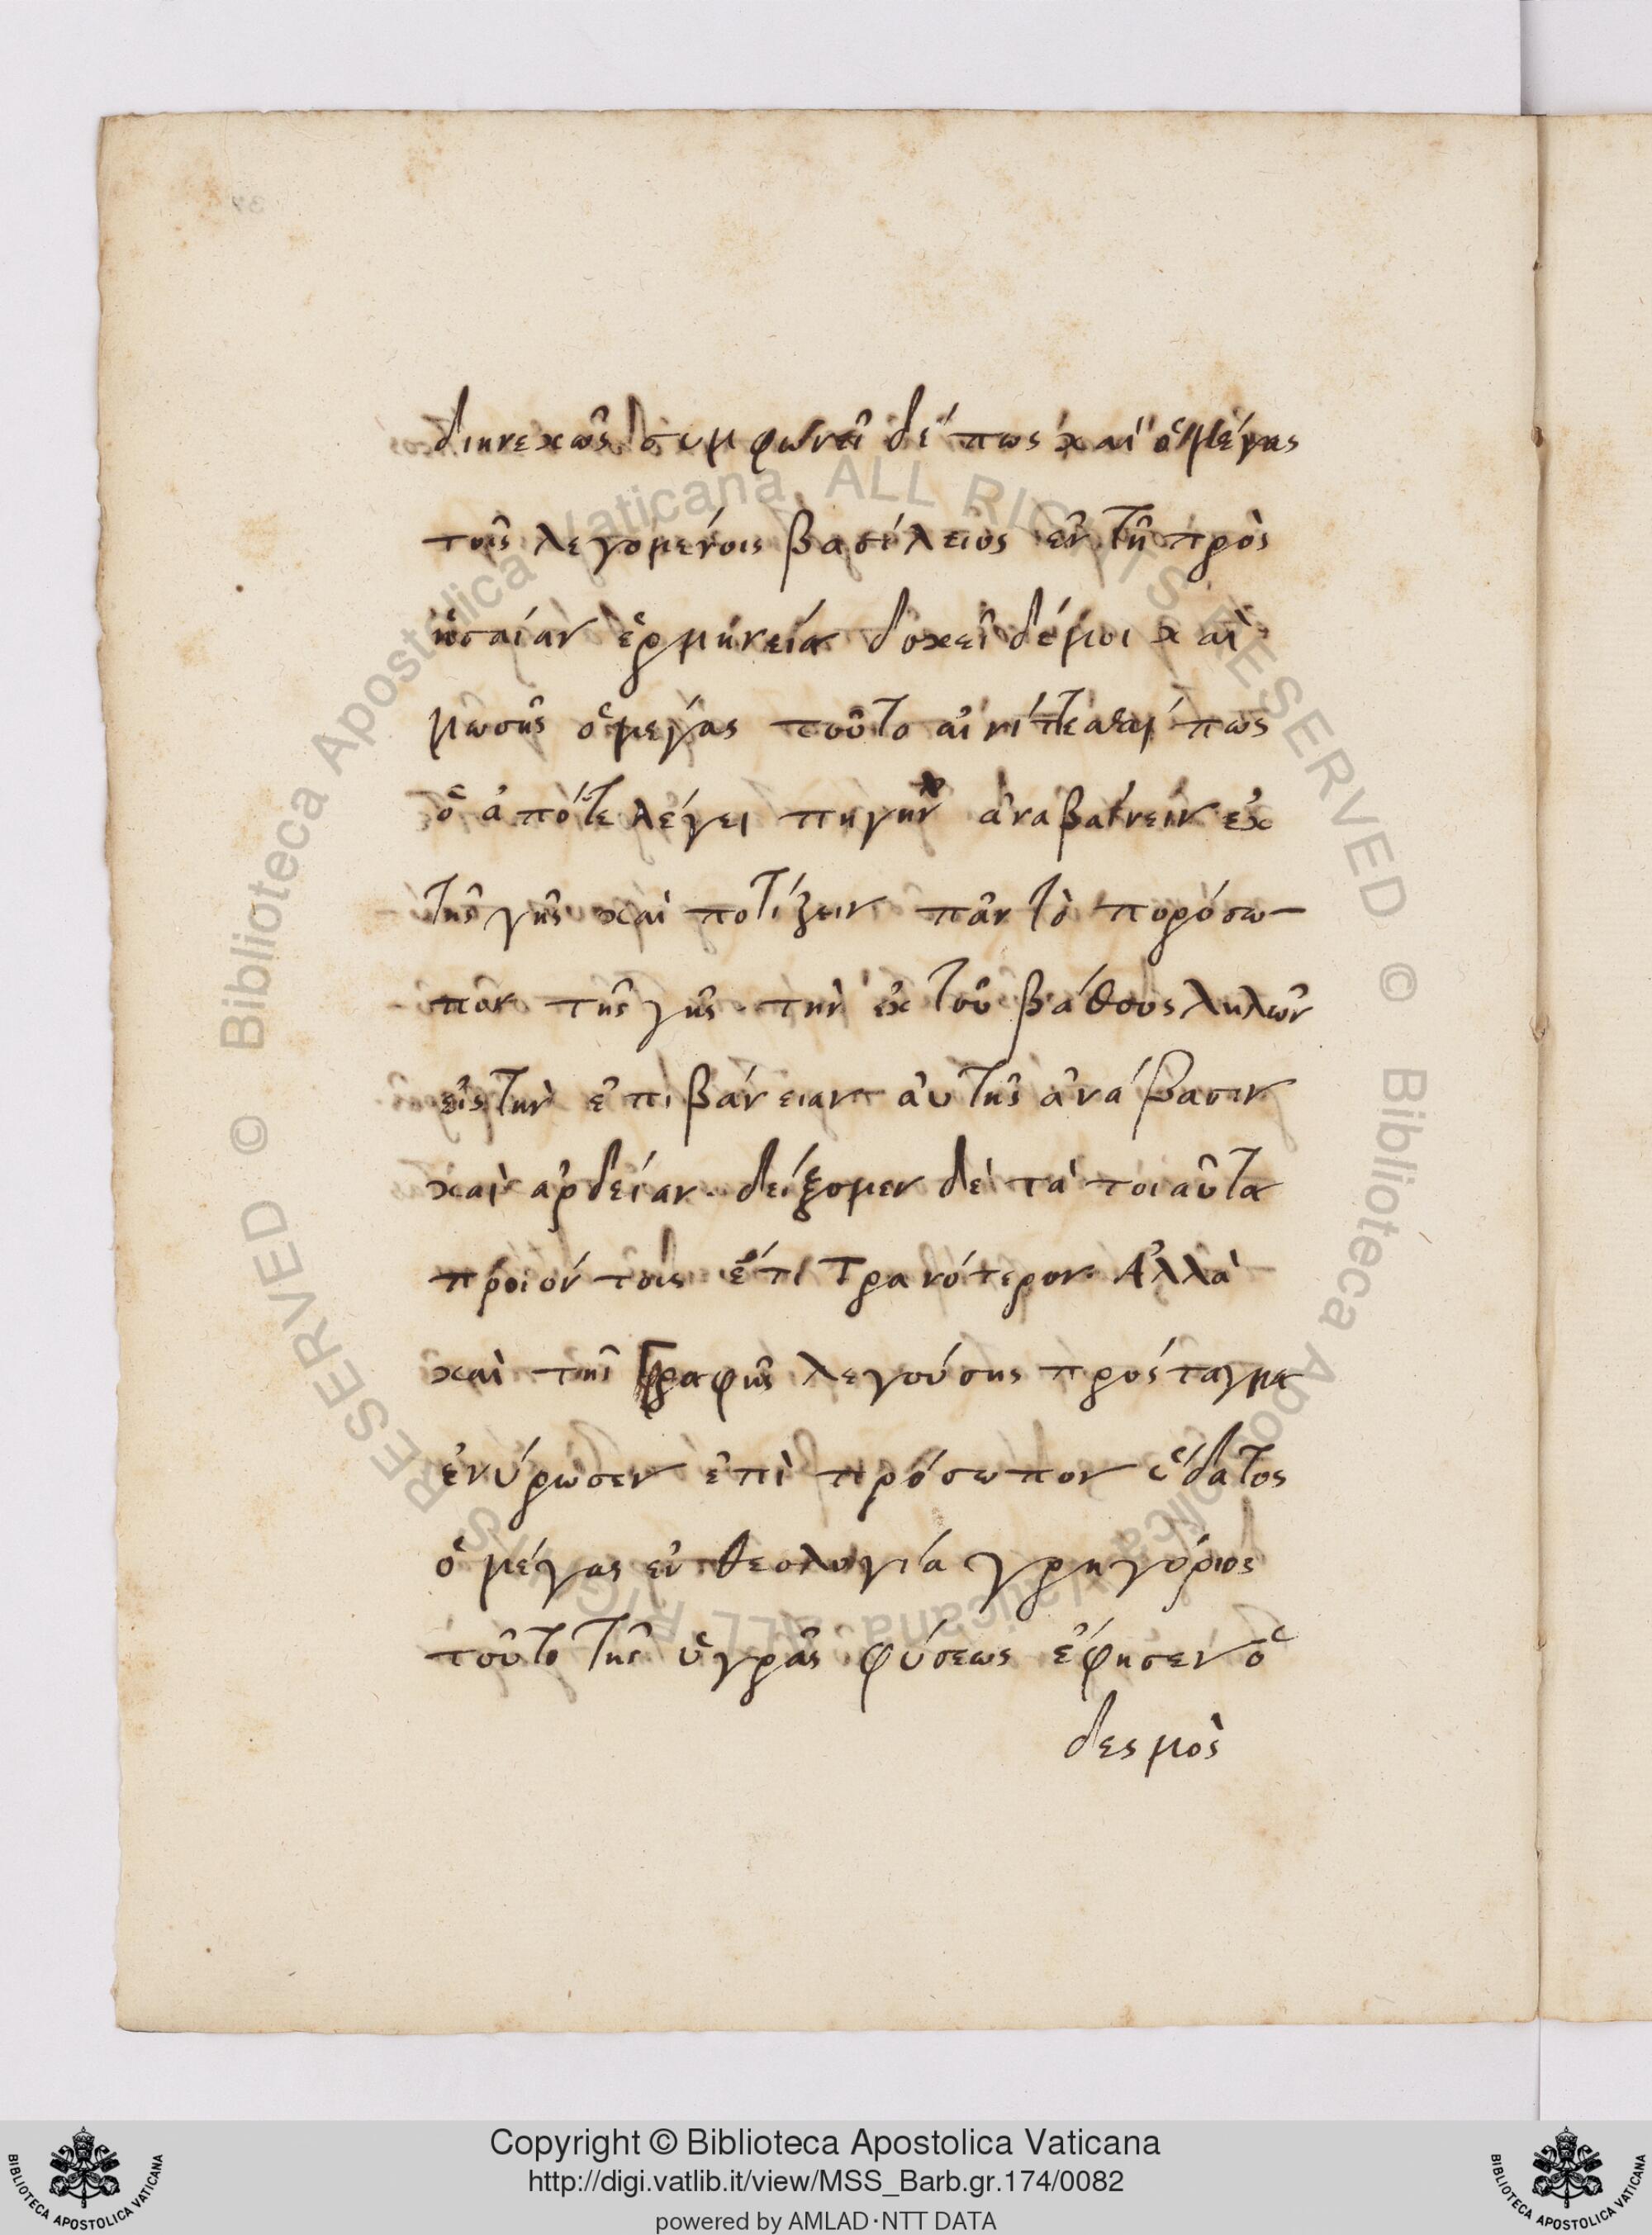 διηνεκῶς συμφωνεῖ δέ πως καὶ ὁ μέγας
τοῖς λεγομένοις βασίλειος ἐν τῇ πρὸς
ἡσαίαν ἑρμηνεία δοκεῖ δέ μοι καὶ
μωσῆς ὁ μέγας τοῦτο αἰνίττεσθαί πως
ὁ ἀπότε λέγει πηγὴν ἀναβαίνειν ἐκ
τῆς γῆς καὶ ποτίζειν πᾶν τὸ πορόσω-
πον τῆς γῆς· τὴν ἐκ τοῦ βάθους δηλῶν
εἰς τὴν ἐπιβάνειαν αὐτῆς ἀνάβασιν
καὶ ἀρδείαν· δείξομεν δὲ τὰ τοιαῦτα
προϊόντοις ἔτι τρανότερον· Ἀλλὰ
καὶ τῆς Γραφῆς λεγούσης πρόσταγμα
ἐνύρωσεν ἐπὶ πρόσωπον ὕδατος
ὁ μέγας ἐν θεολογία γρηγόριος
τοῦτο τῆς ὑγρᾶς φύσεως ἔφησεν ὁ
δεσμὸς
Copyright © Biblioteca Apostolica Vaticana
http://digi.vatlib.it/view/MSS_Barb.gr.174/0082
powered by AMLAD·NTT DATA
BIBLIOTECA APOSTOLICA VATICANA
BIBLIOTECA APOSTOLICA VATICANA
© Biblioteca Apostolica Vaticana ALL RIGHTS RESERVED
© Biblioteca Apostolica Vaticana ALL RIGHTS RESERVED